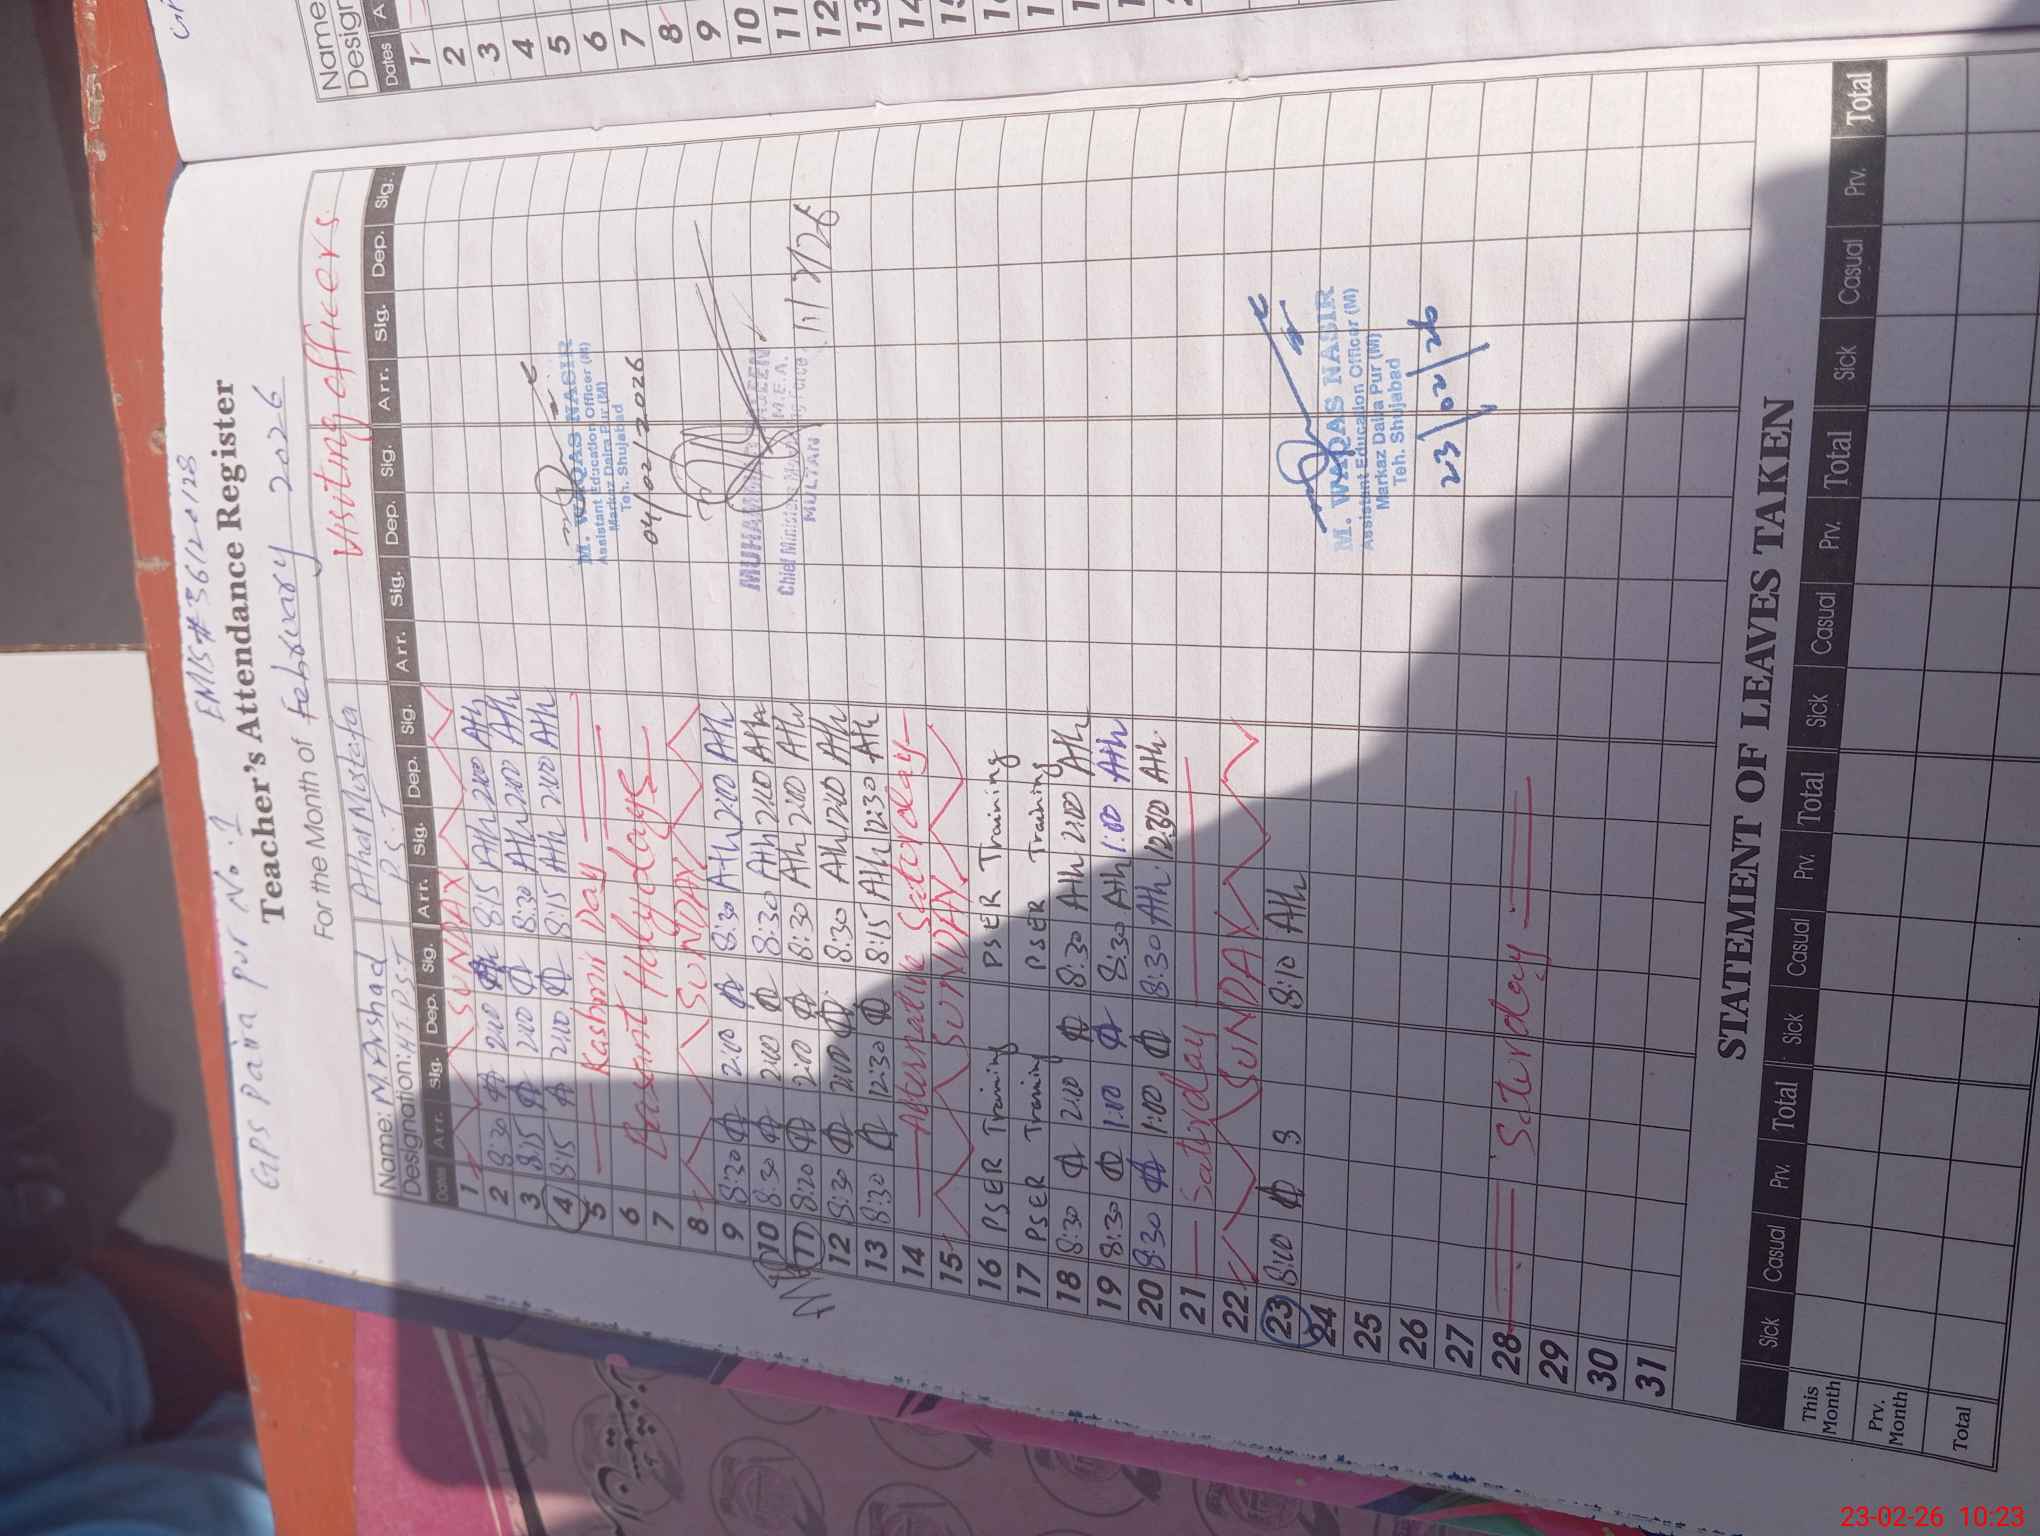 GPS Daira pur No. 1 EMIS# 36120128
Teacher's Attendance Register
For the Month of February 2026
Name: M. Arshad Athar Mustafa Visiting officers
Designation: H.T PST P.S.T
Dates Arr. Sig. Dep. Sig. Arr. Sig. Dep. Sig. Arr. Sig. Dep. Sig. Arr. Sig. Dep. Sig.
1 SUNDAY
2 8:30 2:00 8:15 Ath 2:00 Ath
3 8:15 2:00 8:30 Ath 2:00 Ath
4 8:15 2:00 8:15 Ath 2:00 Ath
5 Kashmir Day
6 Basant Holydays
7
8 SUNDAY
9 8:30 2:00 8:30 Ath 2:00 Ath
10 8:30 2:00 8:30 Ath 2:00 Ath
11 8:20 2:00 8:30 Ath 2:00 Ath
12 8:30 2:00 8:30 Ath 12:00 Ath
13 8:30 12:30 8:15 Ath 12:30 Ath
14 Alternative Saturday
15 SUNDAY
16 PSER Training PSER Training
17 PSER Training PSER Training
18 8:30 2:00 8:30 Ath 2:00 Ath
19 8:30 1:00 8:30 Ath 1:00 Ath
20 8:30 1:00 8:30 Ath 12:30 Ath
21 Saturday
22 SUNDAY
23 8:00 8:10 Ath
24
25
26
27
28 Saturday
29
30
31
M. WAQAS NASIR
Assistant Education Officer (M)
Markaz Daira Pur (M)
Teh. Shujabad
04/02/2026
MUHAMMAD
Chief Minister M.E.A.
MULTAN
11/2/26
M. WAQAS NASIR
Assistant Education Officer (M)
Markaz Daira Pur (M)
Teh. Shujabad
23/02/26
STATEMENT OF LEAVES TAKEN
Sick Casual Prv. Total Sick Casual Prv. Total Sick Casual Prv. Total Sick Casual Prv. Total
This Month
Prv. Month
Total
Name
Design
Dates A
1
2
3
4
5
6
7
8
9
10
11
12
13
23-02-26 10:23